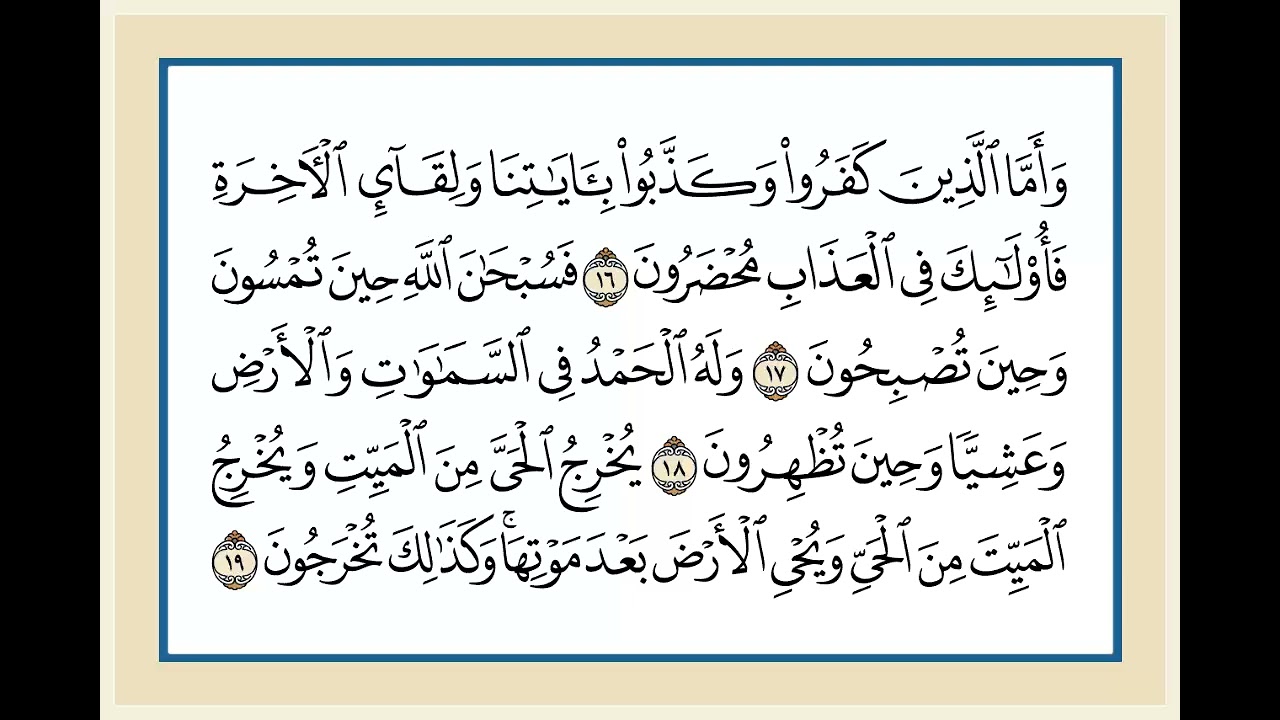 وَأَمَّا ٱلَّذِينَ كَفَرُوا۟ وَكَذَّبُوا۟ بِـَٔايَـٰتِنَا وَلِقَآئِ ٱلْـَٔاخِرَةِ
فَأُو۟لَـٰٓئِكَ فِى ٱلْعَذَابِ مُحْضَرُونَ ١٦ فَسُبْحَـٰنَ ٱللَّهِ حِينَ تُمْسُونَ
وَحِينَ تُصْبِحُونَ ١٧ وَلَهُ ٱلْحَمْدُ فِى ٱلسَّمَـٰوَٰتِ وَٱلْأَرْضِ
وَعَشِيًّا وَحِينَ تُظْهِرُونَ ١٨ يُخْرِجُ ٱلْحَىَّ مِنَ ٱلْمَيِّتِ وَيُخْرِجُ
ٱلْمَيِّتَ مِنَ ٱلْحَىِّ وَيُحْىِ ٱلْأَرْضَ بَعْدَ مَوْتِهَا ۚ وَكَذَٰلِكَ تُخْرَجُونَ ١٩